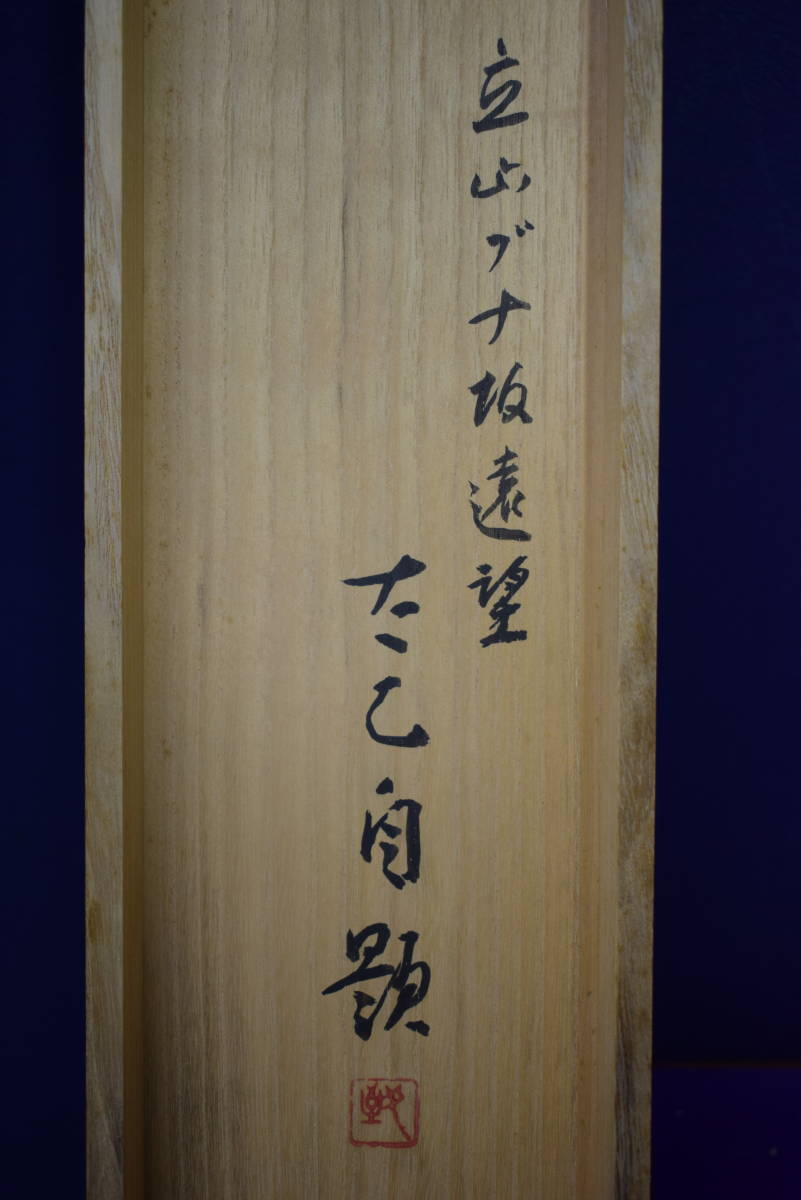 立山ブナ坂遠望
太乙自題